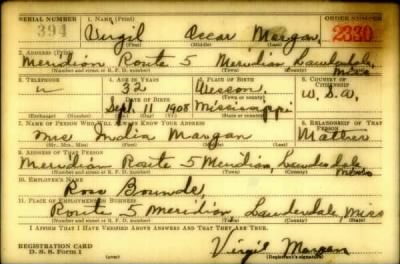 SERIAL NUMBER 1. NAME (Print) ORDER NUMBER
394 Virgil Oscar Morgan 2330
(First) (Middle) (Last)
2. ADDRESS (Print)
Meridian Route 5 Meridian, Lauderdale, Miss
(Number and street or R. F. D. number) (Town) (County) (State)
3. TELEPHONE 4. AGE IN YEARS 5. PLACE OF BIRTH 6. COUNTRY OF CITIZENSHIP
32 Wesson,
DATE OF BIRTH (Town or county)
Sept. 11 1908 Mississippi U. S. A.
(Exchange) (Number) (Mo.) (Day) (Yr.) (State or country)
7. NAME OF PERSON WHO WILL ALWAYS KNOW YOUR ADDRESS 8. RELATIONSHIP OF THAT PERSON
Mrs India Morgan Mother
(Mr., Mrs., Miss) (First) (Middle) (Last)
9. ADDRESS OF THAT PERSON
Meridian Route 5 Meridian, Lauderdale, Miss
(Number and street or R. F. D. number) (Town) (County) (State)
10. EMPLOYER'S NAME
Ross Bounds
11. PLACE OF EMPLOYMENT OR BUSINESS
Route 5 Meridian, Lauderdale, Miss
(Number and street or R. F. D. number) (Town) (County) (State)
I AFFIRM THAT I HAVE VERIFIED ABOVE ANSWERS AND THAT THEY ARE TRUE.
REGISTRATION CARD Virgil Morgan
D. S. S. Form 1 (over) (Registrant's signature)